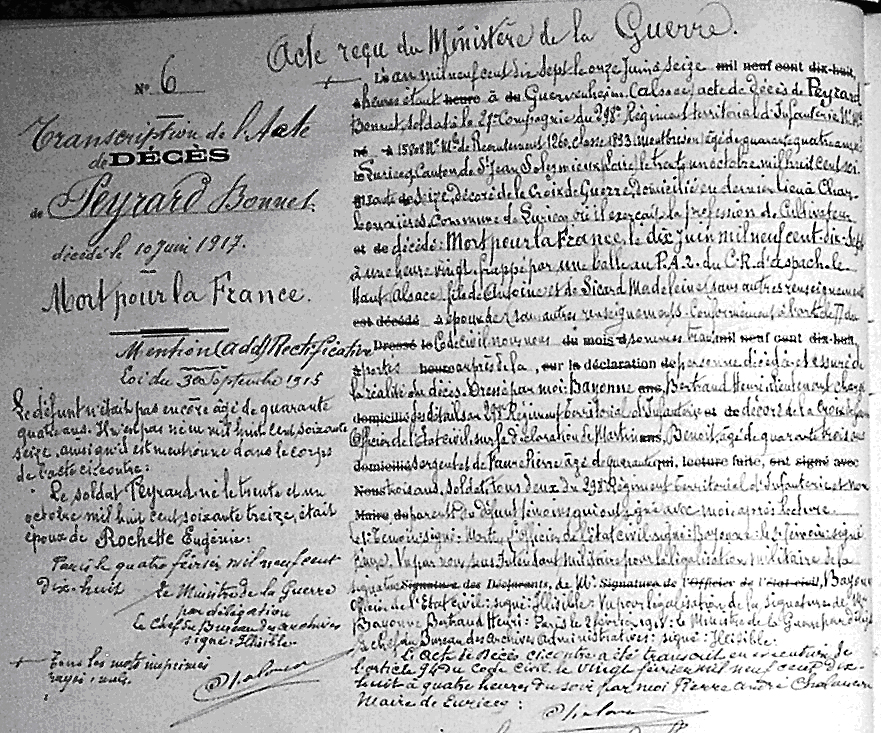 Acte reçu du Ministère de la Guerre.
N° 6
Transcription de l'Acte
de DÉCÈS
de Peyrard Bonnet.
décédé le 10 juin 1917.
Mort pour la France.
Mention (add) Rectificative
Loi du 30 Septembre 1915
Le défunt n'était pas encore âgé de quarante
quatre ans. Il n'est pas né en mil huit cent soixante
seize, ainsi qu'il est mentionné dans le corps
de l'acte ci-contre:
Le soldat Peyrard, né le trente et un
octobre mil huit cent soixante treize, était
époux de Rochette Eugénie:
Paris le quatre février mil neuf cent
dix-huit le Ministre de la Guerre
par délégation
le Chef du Bureau des archives
signé: Illisible
Tous les mots imprimés
rayés: nuls.
L'an mil neuf cent dix sept le onze Juin à seize mil neuf cent dix-huit,
à heures étant heure à du Guervenheim (Alsace) acte de décès de Peyrard
Bonnet, soldat à la 27e Compagnie du 298e Régiment territorial d'Infanterie N° Mle
né à 15801 N° Mle de Recrutement 1260, classe 1893 Montbrison, âgé de quarante quatre ans
Luriecq, Canton de St Jean Soleymieux (Loire) le trente un octobre mil huit cent soi
xante seize, décoré de la Croix de Guerre, domicilié en dernier lieu à Char
bonnières, Commune de Luriecq où il exerçait la profession de Cultivateur
et de décédé: Mort pour la France, le dix Juin mil neuf cent dix-sept
à une heure vingt, frappé par une balle au P.A.2. du C.R. d'aspach-le
Haut, Alsace, fils de Antoine et de Sicard Madeleine, sans autres renseignements
est décédé époux de (sans autres renseignements. Conformément à l'art. 77 du
Dressé le Code civil, nous nous du mois d sommes transportés mil neuf cent dix-huit,
à heure auprès de la, sur la déclaration de personne décédée et assuré de
la réalité du décès. Dressé par moi: Bayonne ans, Bertrand Henri, Lieutenant chargé
domicilié des détails au 298e Régiment territorial d'Infanterie et de décoré de la Croix de
Officier de l'Etat civil, sur la déclaration de Martin ans, Benoit, âgé de quarante trois ans
domicilié sergent et de Faure Pierre âgé de quarante qui, lecture faite, ont signé avec
Nous trois ans, soldat, tous deux du 298e Régiment territorial d'Infanterie et non
Maire, du parents du défunt témoins qui ont signé avec moi après lecture
Le 1er témoin: signé: l'Officier de l'état civil: signé: Bayonne: le 2e témoin: signé
Faure. Vu par nous sous-Intendant militaire pour la légalisation militaire de la
signature Signature des Déclarants, de Mr Signature de l'Officier de l'Etat civil, Bayonne
Officier de l'Etat Civil: signé: Illisible: Vu pour légalisation de la signature de Mr
Bayonne Bertrand Henri: Paris le 2 février 1918: le Ministre de la Guerre par
le chef du Bureau des Archives Administratives: signé: Illisible:
L'Acte de Décès ci-contre a été transcrit en exécution de
l'article 94 du Code Civil le vingt février mil neuf cent dix-
huit à quatre heures du soir par moi Pierre André
Maire de Luriecq: